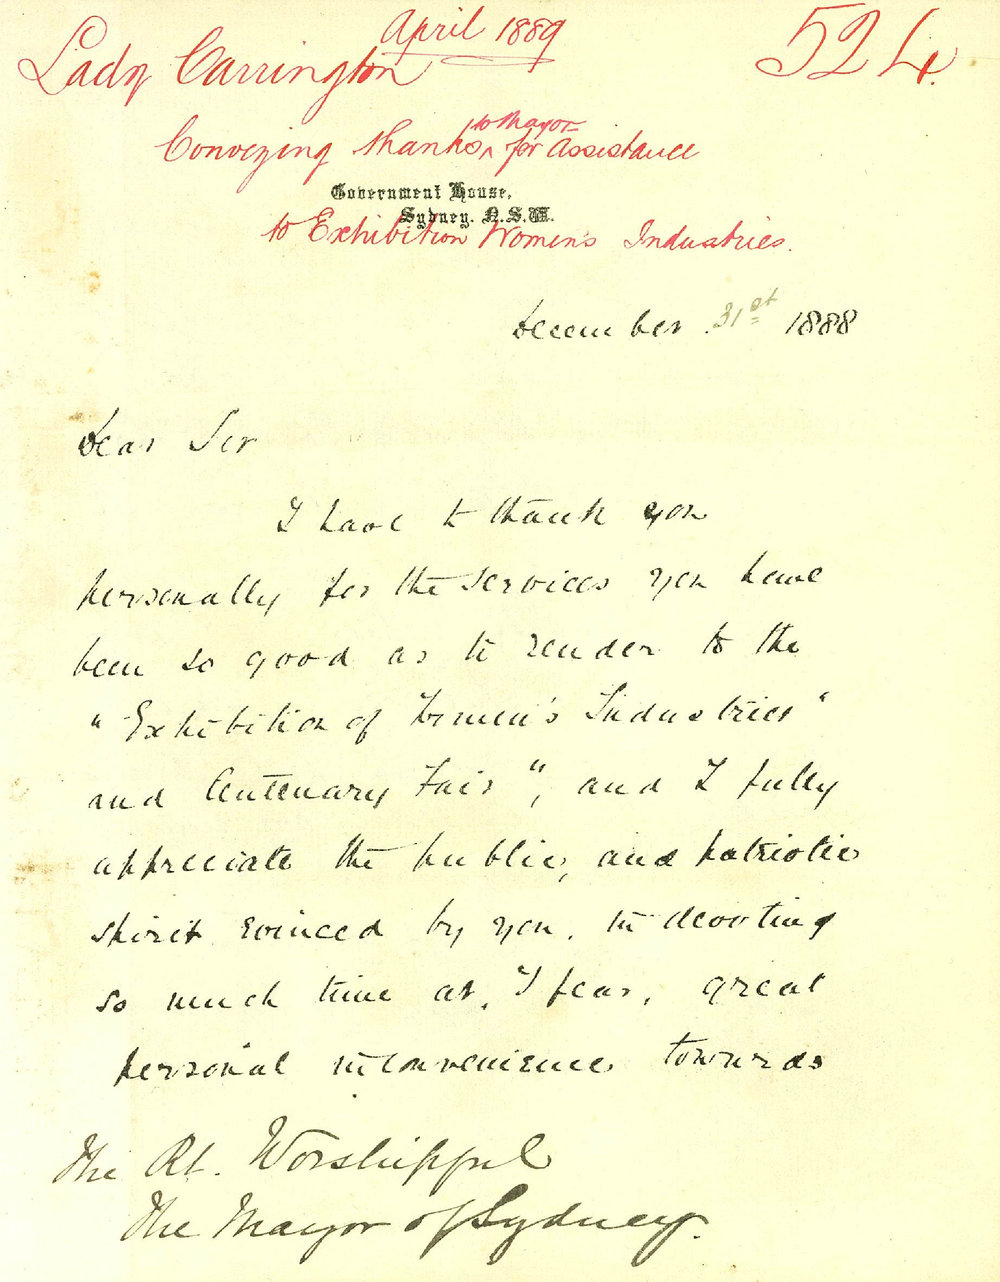 April 1889
Lady Carrington
524.
Conveying thanks ^ to Mayor for assistance
Government House,
Sydney. N.S.W.
to Exhibition Women's Industries.
December 31st 1888
Dear Sir
I have to thank you
personally for the services you have
been so good as to render to the
"Exhibition of Women's Industries"
and Centenary Fair", and I fully
appreciate the public, and patriotic
spirit evinced by you, in devoting
so much time at, I fear, great
personal inconvenience towards
The Rt. Worshipful
The Mayor of Sydney.